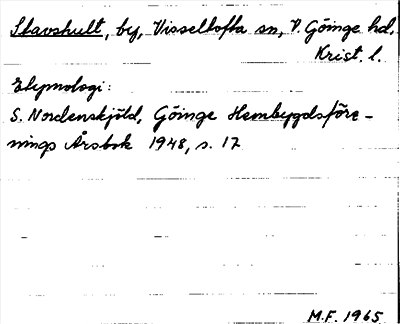 Skavshult, by, Visseltofta sn, V. Göinge hd,
Krist. l.
Etymologi:
S. Nordenskjöld, Göinge Hembygdsföre-
nings Årsbok 1948, s. 17
M.F. 1965